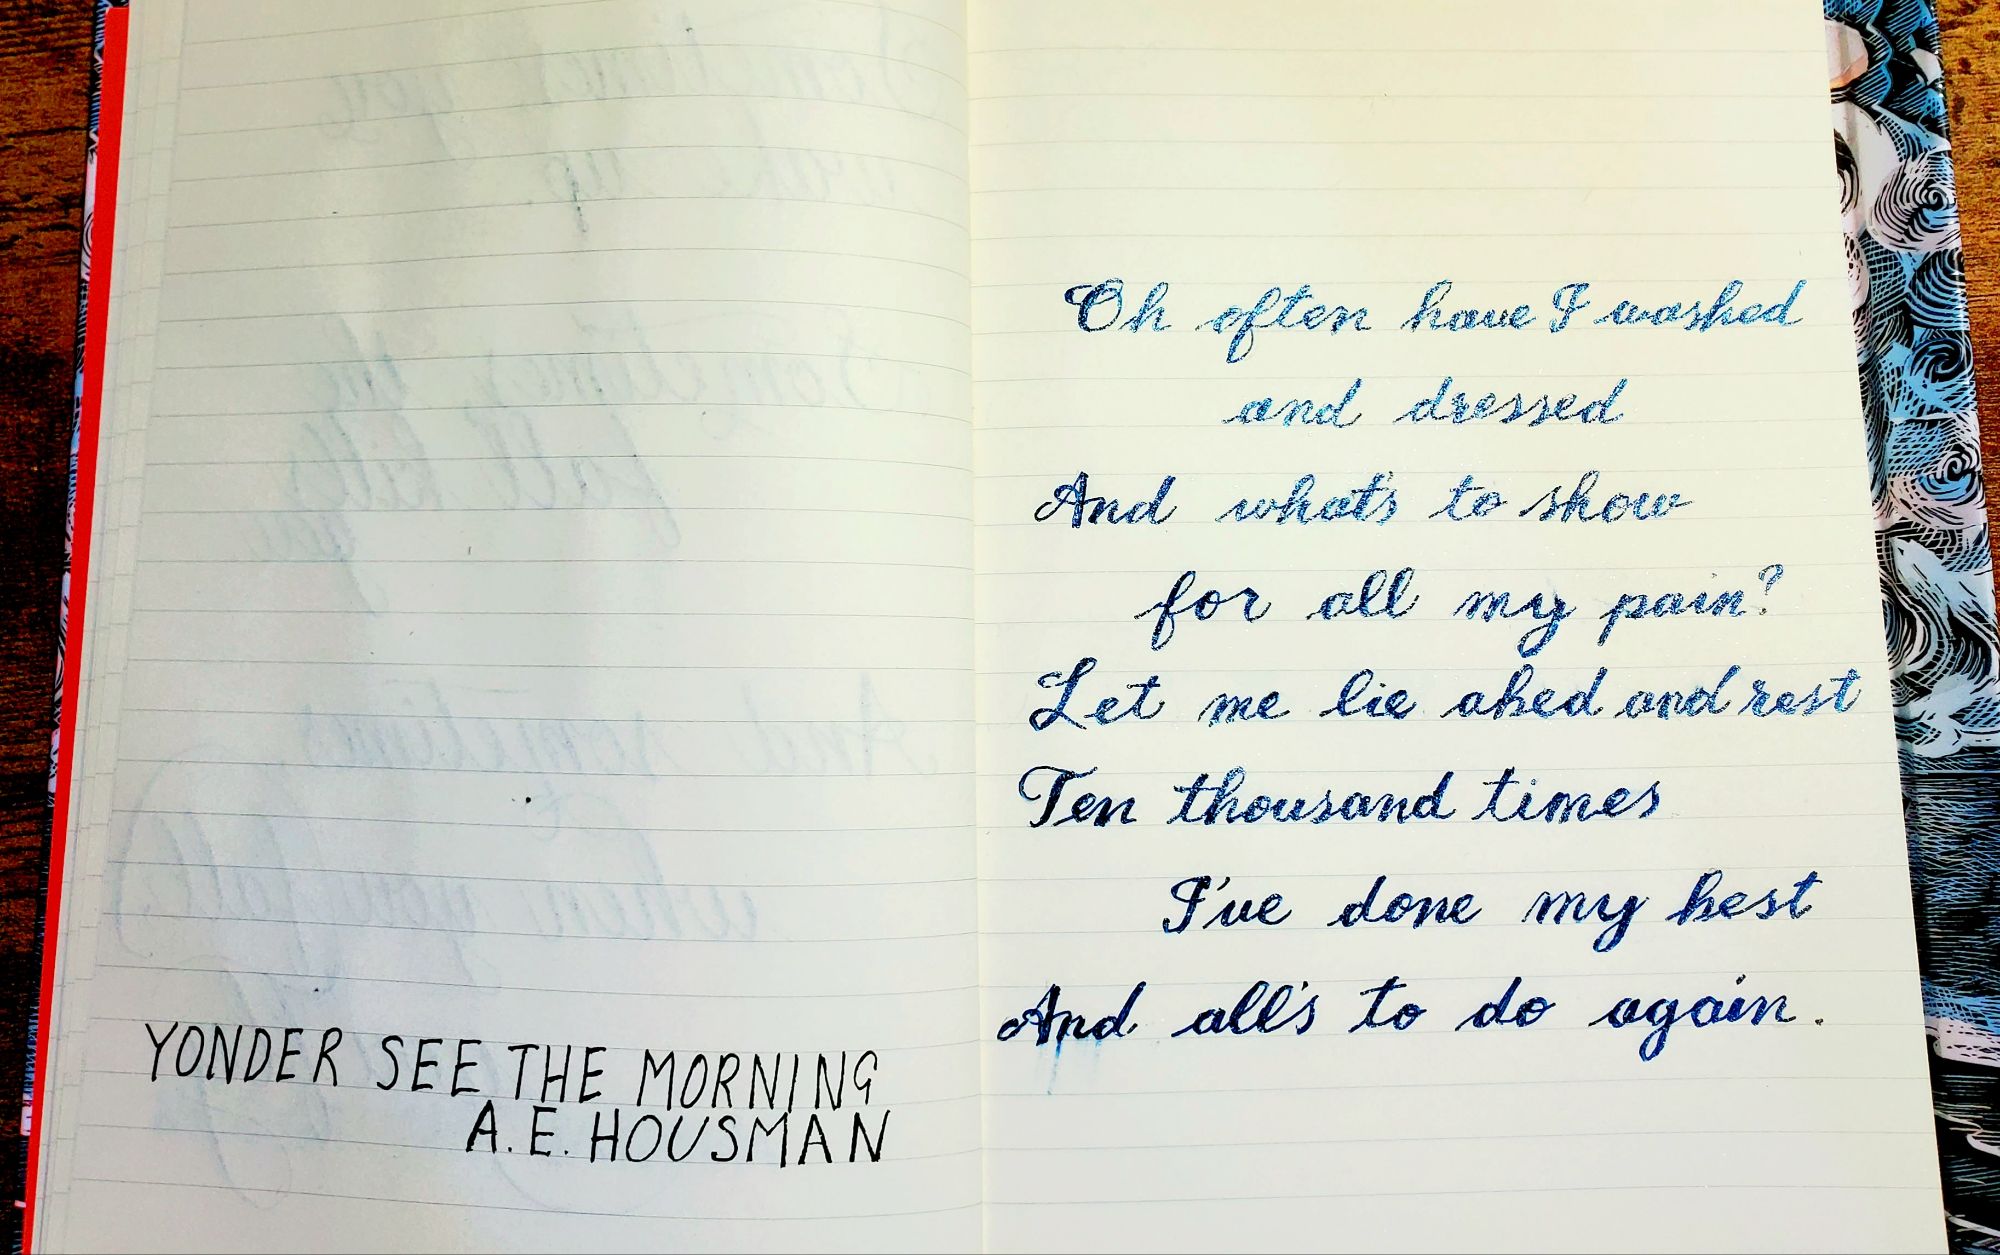 YONDER SEE THE MORNING
A. E. HOUSMAN
Oh often have I washed
and dressed
And what's to show
for all my pain?
Let me lie abed and rest
Ten thousand times
I've done my best
And all's to do again.